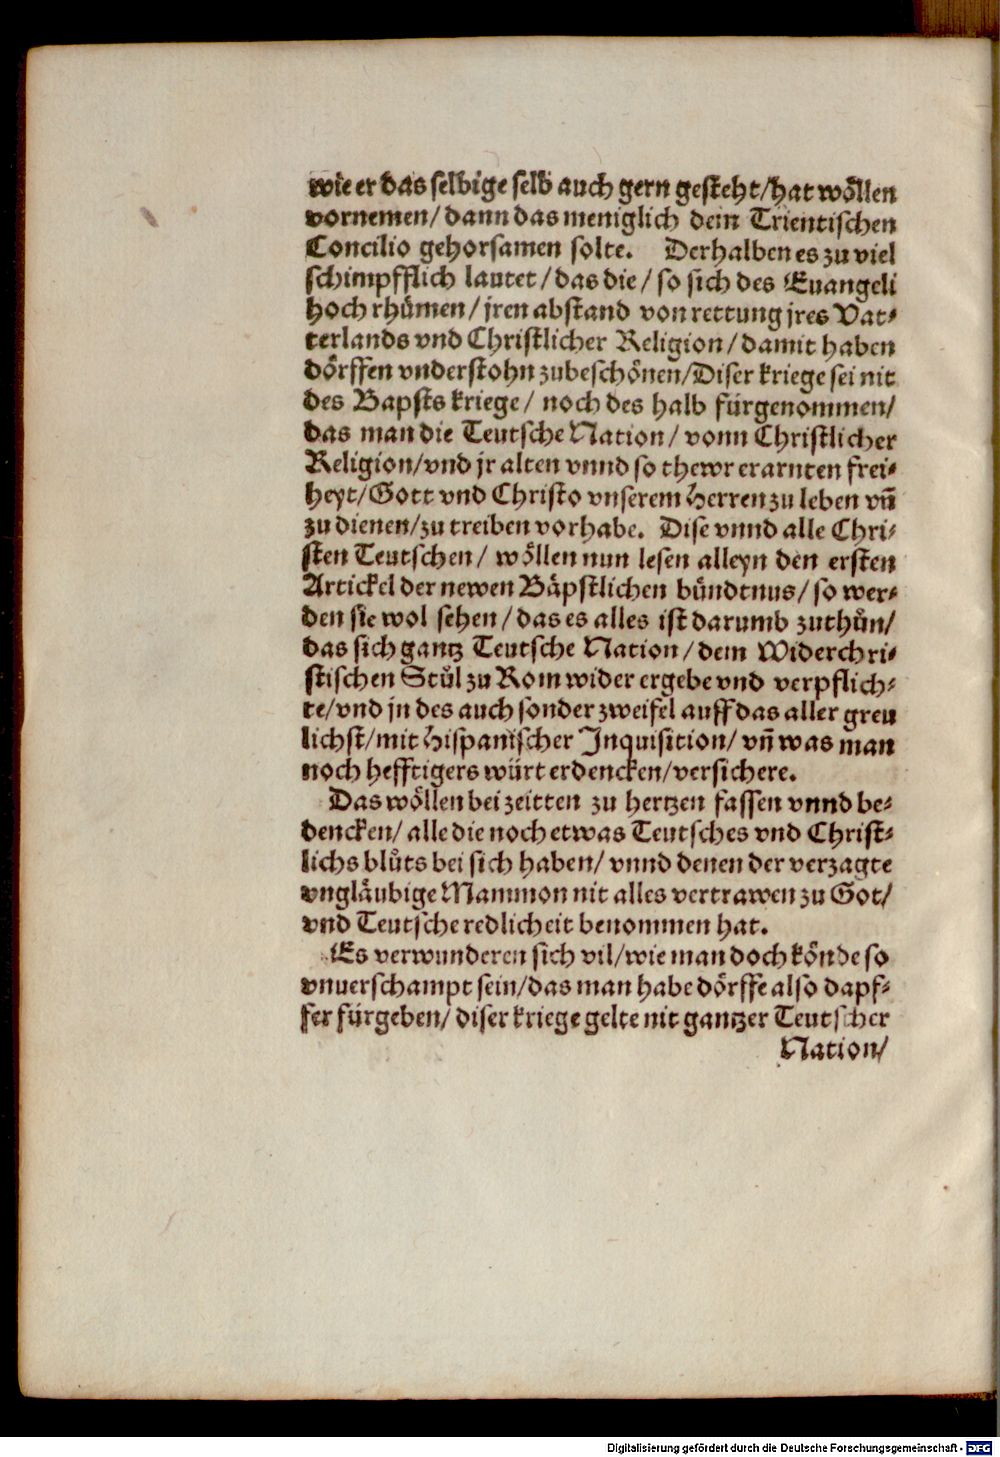 wie er das selbige selb auch gern gesteht/hat wöllen
vornemen/ dann das meniglich dem Trientischen
Concilio gehorsamen solte. Derhalben es zu viel
schimpfflich lautet/das die/ so sich des Euangeli
hoch rhümen/ jren abstand von rettung jres Vat-
terlands vnd Christlicher Religion/ damit haben
dörffen vnderstohn zubeschönen/Diser kriege sei nit
des Bapsts kriege/ noch des halb fürgenommen/
das man die Teutsche Nation/ vonn Christlicher
Religion/vnd jr alten vnnd so thewr erarnten frei-
heyt/Gott vnd Christo vnserem Herren zu leben vñ
zu dienen/zu treiben vorhabe. Dise vnnd alle Chri-
sten Teutschen/ wöllen nun lesen alleyn den ersten
Artickel der newen Bäpstlichen bündtnus/ so wer-
den sie wol sehen/das es alles ist darumb zuthůn/
das sich gantz Teutsche Nation/dem Widerchri-
stischen Stůl zu Rom wider ergebe vnd verpflich-
te/vnd in des auch sonder zweifel auff das aller greu
lichst/mit Hispanischer Inquisition/ vñ was man
noch hefftigers würt erdencken/versichere.
Das wöllen bei zeitten zu hertzen fassen vnnd be-
dencken/ alle die noch etwas Teutsches vnd Christ-
lichs blůts bei sich haben/ vnnd denen der verzagte
vngläubige Mammon nit alles vertrawen zu Got/
vnd Teutsche redlicheit benommen hat.
Es verwunderen sich vil/wie man doch könde so
vnuerschampt sein/das man habe dörffe also dapf-
fer fürgeben/ diser kriege gelte nit gantzer Teutscher
Nation/
Digitalisierung gefördert durch die Deutsche Forschungsgemeinschaft - DFG